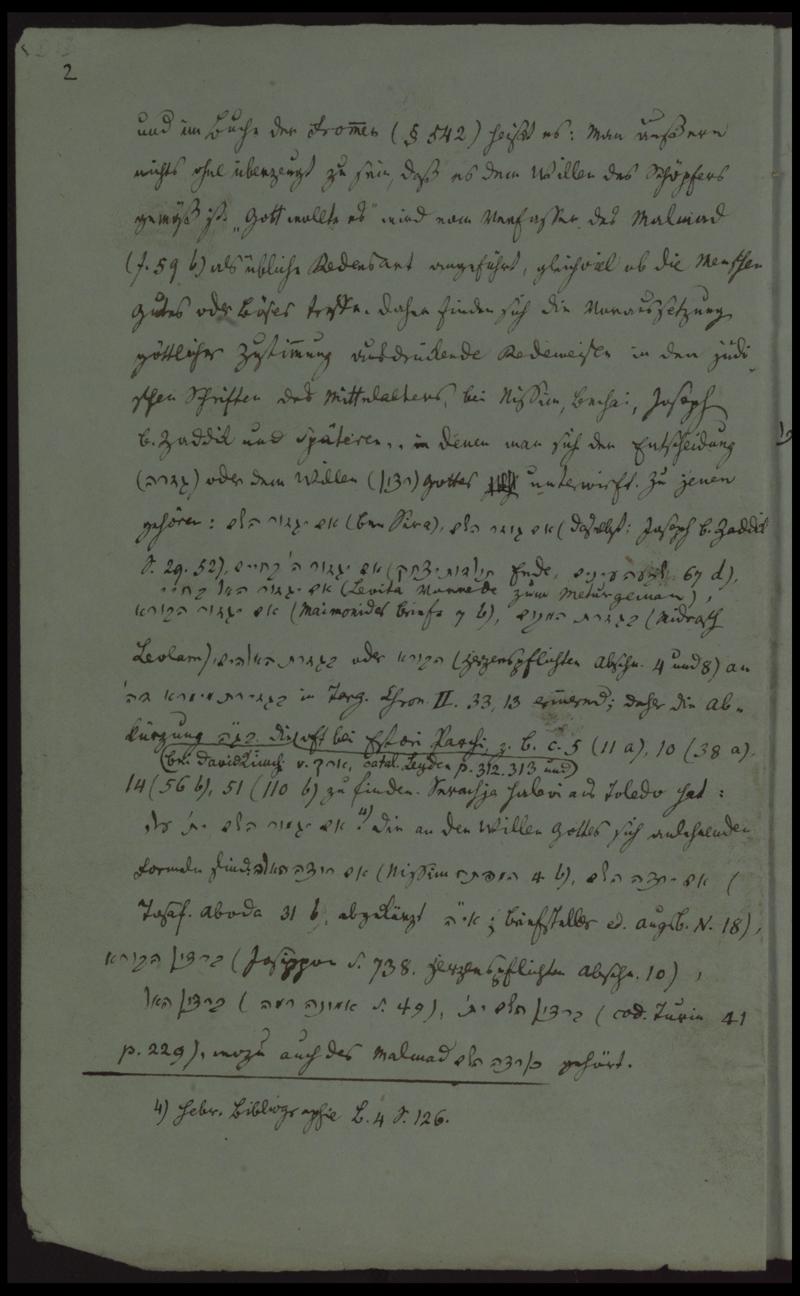 2
und im Buche der Frommen (§ 542) heißt es: Man äußere
nichts ohne überzeugt zu sein, daß es dem Willen des Schöpfers
gemäß ist. „Gott wollte es“ wird vom Verfasser des Malmad
(f. 59 b) als übliche Redensart angeführt, gleichviel ob die Menschen
Gutes oder Böses treffe. Daher finden sich die Voraussetzung
göttlicher Zustimmung ausdrückende Redeweisen in den jüdi-
schen Schriften des Mittelalters, bei Nissim, Bechai, Joseph
b. Zaddik und Späteren, in denen man sich der Entscheidung
(גזרה) oder dem Willen (רצון) Gottes unterwirft. Zu jenen
gehören: אם יגזור השם (Ben Sira), אם גוזר השם (daselbst: Joseph b. Zaddik
S. 29. 52), אם יגזור ה' בחיים (תולדות יצחק Ende, עינים 67 d),
אם יגזור האל בחיי (Levita Vorrede zum Meturgeman),
אם יגזור הבורא (Maimonides Briefe 7 b), בגזרת המקום (Midrasch
Leolam), בגזרת האלהים oder הבורא (Herzenspflichten Abschn. 4 und 8) an
בגזירת מימרא דה' in Targ. Chron. II. 33, 13 erinnernd; daher die Ab-
kürzung בג״ה, die oft bei Estori Parchi z. B. c. 5 (11 a), 10 (38 a).
(bei David Kimchi v. ארך, Catal. Leyden p. 312. 313 und)
14 (56 b), 51 (110 b) zu finden. Serachja Halevi aus Toledo hat:
אם יגזור השם ית' 4) Die an den Willen Gottes sich anlehnenden
Formeln sind: אם ירצה האל (Nissim המפתח 4 b), אם ירצה השם (
Tosaf. Aboda 31 b, abgekürzt אי״ה; Briefsteller ed. Augsb. N. 18),
ברצון הבורא (Josippon S. 738. Herzenspflichten Abschn. 10),
ברצון האל (אמונה רמה S. 49), ברצון השם ית' (Cod. Turin 41
p. 229), wozu auch des Malmad כרצה השם gehört.
4) Hebr. Bibliographie B. 4 S. 126.